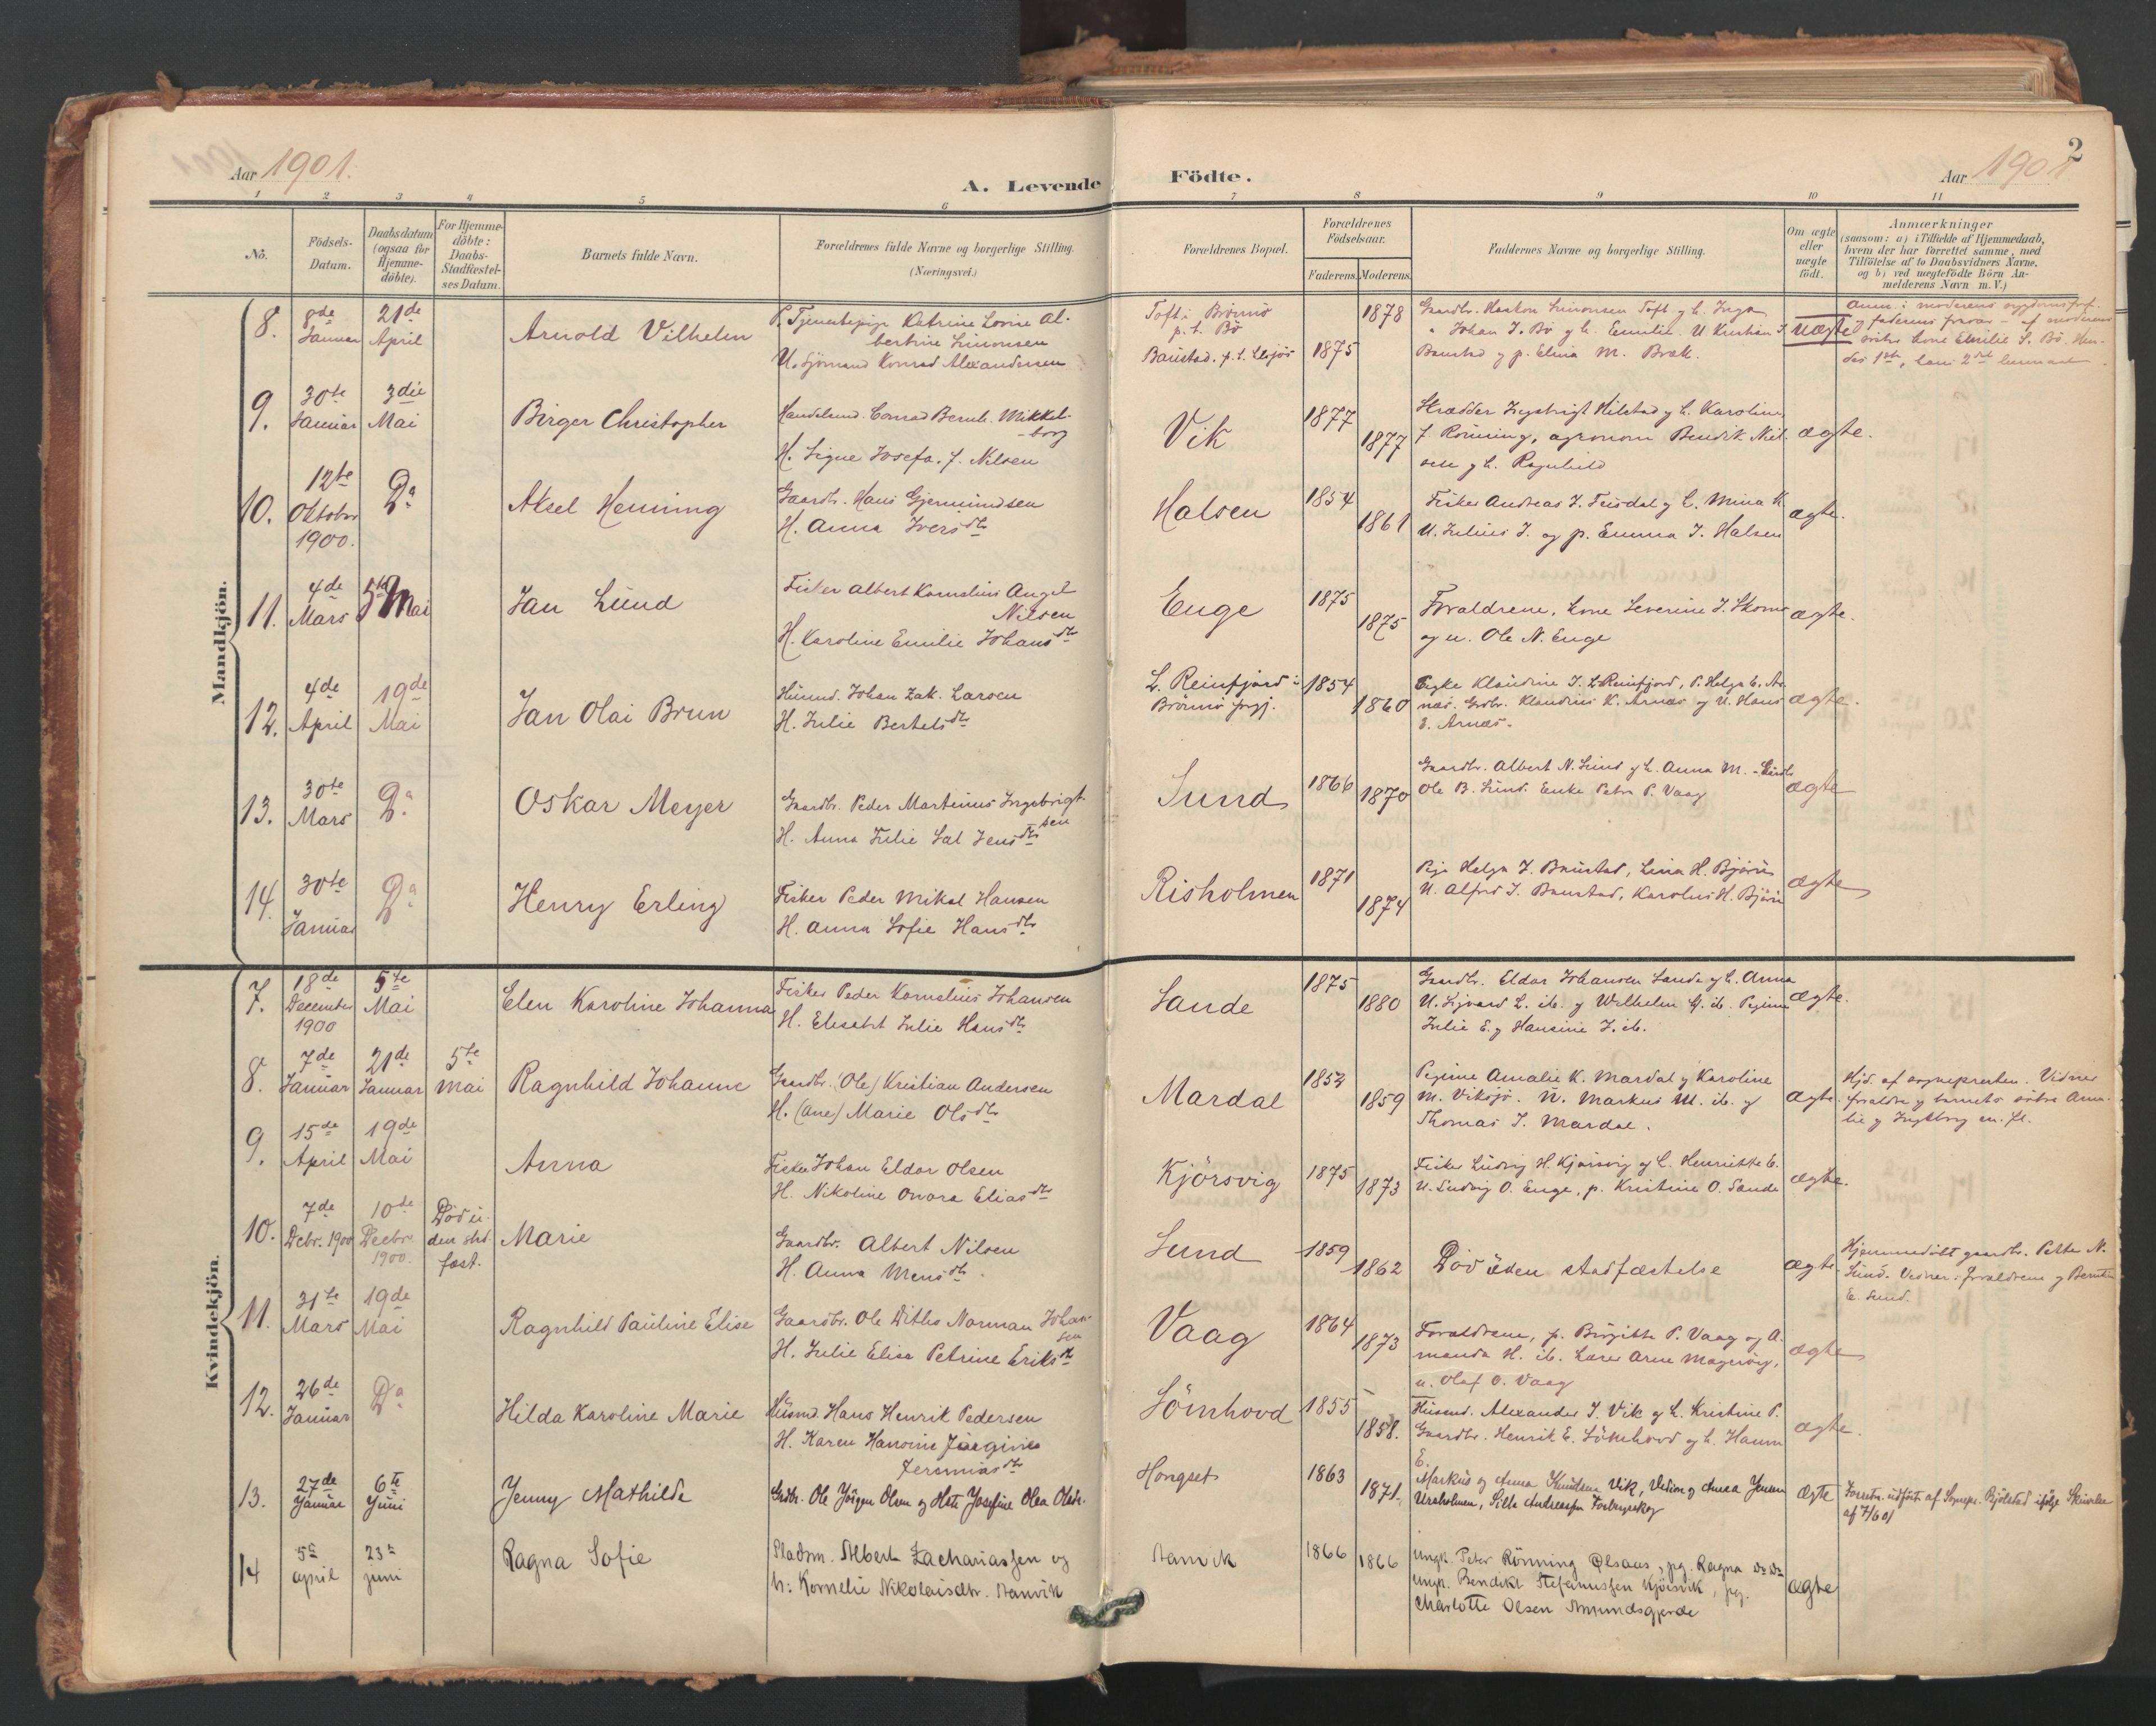 Aar 1901.
A. Levende Födte.
2
Aar 1901
1 2 3 4 5 6 7 8 9 10 11
No.
Födsels-Datum.
Daabsdatum (ogsaa for Hjemme-döbte).
For Hjemme-döbte: Daabs-Stadfæstel-ses Datum.
Barnets fulde Navn.
Forældrenes fulde Navne og borgerlige Stilling. (Næringsvei.)
Forældrenes Bopæl.
Forældrenes Födselsaar.
Faderens. Moderens.
Faddernes Navne og borgerlige Stilling.
Om ægte eller uægte födt.
Anmærkninger
(saasom: a) i Tilfælde af Hjemmedaab, hvem der har forrettet samme, med Tilföielse af to Daabsvidners Navne, og b) ved uægtefödte Börn An-melderens Navn m. V.)
Mandkjön.
8. 8de Januar 21de April Arnold Vilhelm
P. Tjenestepige Katrine Lovise Al-
bertine Simonsen
U. Sjömand Konrad Alexandersen
Toft i Brönnö
p. t. Bö
Baustad. p. t.
1878
1875
Gaardbr. Haakon Simonsen Toft og h. Inga
" Johan J. Bö og h. Emilie. U Kristian J.
Baustad og p. Elina M. Bræk.
uægte
9. 30te Januar 3die Mai Birger Christopher
Handelsmd. Conrad Bernh. Mikkel-
borg
H. Signe Josefa. f. Nilsen
Vik 1877 1877
Skrædder Ingebrigt Hilstad og h. Karoline,
f. Rönning, agronom Bendik Niel-
sen og h. Ragnhild
ægte.
10. 12te Oktober 1900. Do Aksel Henning
Gaardbr. Hans Gjermundsen
H. Anna Iversdtr
Halsen 1854 1861
Fisker Andreas J. Teisdal og h. Mina K.
U. Julius J. og p. Emma J. Halsen
ægte.
11. 4de Mars 5te Mai Jan Lund
Fisker Albert Kornelius Angel
Nilsen
H. Karoline Emilie Johansdtr
Enge 1875 1875
Forældrene, kone Severine J. Skomo
og u. Ole N. Enge
ægte.
12. 4de April 19de Mai Jan Olai Brun
Husmd. Johan Zak. Larsen
H. Julie Bertelsdtr
L. Reinfjord i
Brönnö prgj.
1854 1860
Enke Klaudine J. L. Reinfjord, P. Helga C. Ar-
næs. Grdbr. Klaudius K. Arnæs og U. Hans
E. Arnæs.
ægte.
13. 30te Mars Do Oskar Meyer
Gaardbr. Peder Martinus Ingebrigt-
sen
H. Anna Julie Sal Jensdtr
Sund 1866 1870
Gaardbr. Albert N. Sund og h. Anna M.
Ole B. Sund. Enke Petra P. Vaag
ægte
14. 30te Januar Do Henry Erling
Fisker Peder Mikal Hansen
H. Anna Sofie Hansdtr
Risholmen 1871 1874
Pige Helga J. Baustad, Lina H. Björu
U. Alfred J. Baustad, Karolius H. Björu
ægte
Kvindekjön.
7. 18de December 1900 5te Mai Elen Karoline Johanna
Fisker Peder Kornelius Johansen
H. Elisabet Julie Hansdtr
Sande 1875 1880
Gaardbr. Eldor Johansen Sande og h. Anna
U. Sigvard L. ib. og Wilhelm A. ib. Pigerne
Julie E. og Hansine J. ib.
ægte.
8. 7de Januar 21de Januar 5te Mai Ragnhild Johanne
Gaardbr. (Ole) Kristian Andersen
H. (Ane) Marie Olsdtr
Mardal 1852 1859
Pigerne Amalie K. Mardal og Karoline
M. Viksjö. U. Markus M. ib. og
Thomas J. Mardal.
ægte.
Hjd. af sognepresten. Vidner
forældre og barnets söstre Ama-
lie og Ingeborg m. fl.
9. 15de April 19de Mai Anna
Fisker Johan Eldor Olsen
H. Nikoline Onora Eliasdtr
Kjörsvig 1875 1873
Fisker Ludvig H. Kjörsvig og h. Henriette C.
U. Ludvig O. Enge, p. Kristine O. Sande
ægte.
10. 7de Debr. 1900 10de Decbr. 1900. Död u-den stad-fæst. Marie
Gaardbr. Albert Nilsen
H. Anna Monsdtr.
Sund 1859 1862
Död uden stadfæstelse
ægte.
Hjemmedöbt gaardbr. Petter N.
Sund. Vidner: forældrene og Berntin
E. Sund.
11. 31te Mars 19de Mai Ragnhild Pauline Elise
Gaardbr. Ole Ditlev Norman Johan-
sen
H. Julie Elise Petrine Eriksdtr
Vaag 1864 1873
Forældrene, p. Birgitte P. Vaag og A-
manda H. ib. Lærer Arne Magnörg,
u. Olaf O. Vaag
ægte
12. 26de Januar Do Hilda Karoline Marie
Husmd Hans Henrik Pedersen
H. Karen Hansine Jörgine
Jeremiasdtr
Sömhovd 1855 1858.
Husmd. Alexander J. Vik og h. Kristine P.
Gaardbr. Henrik E. Sömhovd og h. Hanna
E.
ægte.
13. 27de Januar 6te Juni Jenny Mathilde
Grdbr. Ole Jörgen Olsen og Hstr. Josefine Olea Olsdr.
Hongset 1863 1871.
Markus og Anna Knudsen Vik, Edin og Anea Jensen
Ursholmen, Silla Andreassen Torbergskog
ægte
Forretn. udfört af Sognepr. Björlstad ifölge Skrivelse
af 7/6 01
14 5te april 23de juni Ragna Sofie
Pladsm. Albert Zachariassen og
h: Kornelie Nikolaisdtr. Ramvik
Ramvik 1866 1866
Ungk. Peter Rönning Olsaas, pg. Ragna Do Do
Ungk. Bendikt Stefanussen Kjörsvik, pg.
Charlotte Olsen Amundsgjerde
ægte